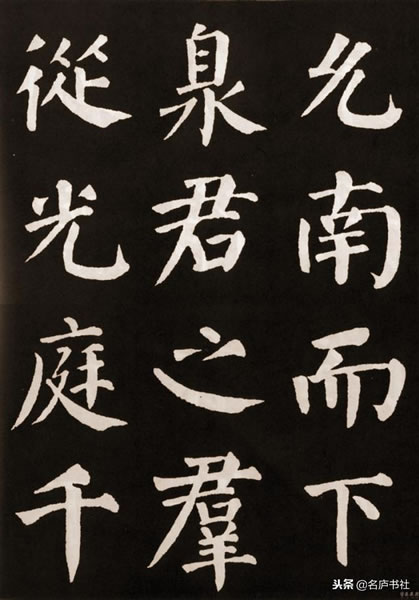 允南而下
臮君之羣
從光庭千
头条 @名庐书社